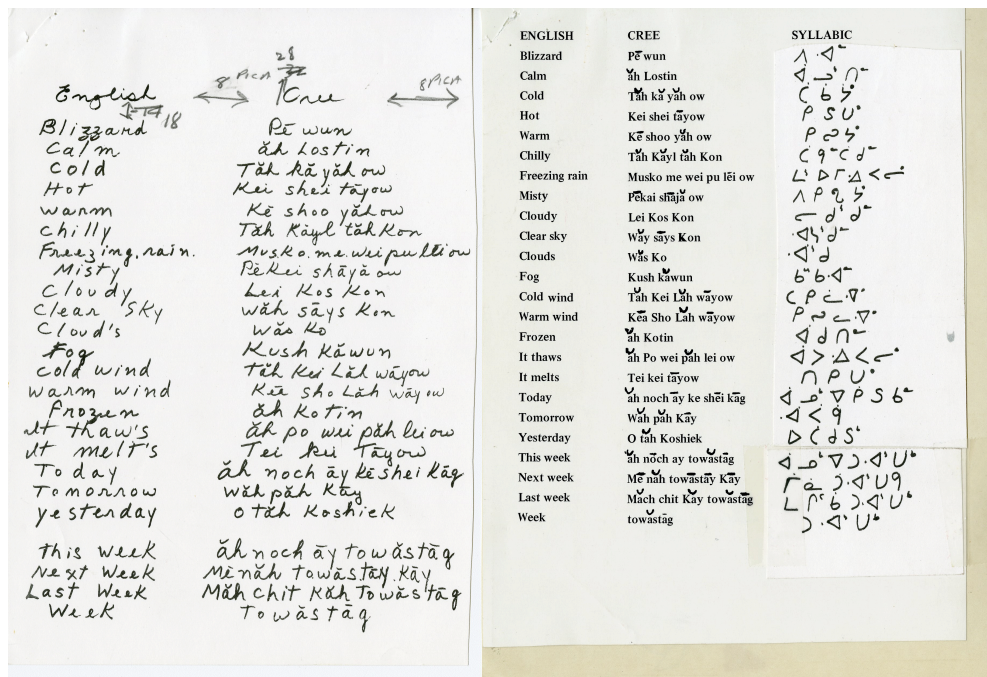 28
8 PICA 32 8 PICA
English Cree
14 18
Blizzard Pē wun
Calm ăh Lostin
Cold Tăh kă yăh ow
Hot Kei shei tāyow
Warm Kē shoo yăh ow
Chilly Tăh Kāyl tăh Kon
Freezing rain. Musko.me.wei pu lēi ow
Misty Pēkei shāyā ow
Cloudy Lei Kos Kon
Clear SKy Wăh sāys Kon
Cloud's Wăs Ko
Fog Kush Kăwun
Cold wind Tăh Kei Lăh wāyow
Warm wind Kēē sho Lăh wāyow
Frozen ăh Kotin
It thaw's ăh po wei păh lei ow
It melt's Tei kei Tāyow
Today ăh noch āy kē shei Kāg
Tomorrow Wăh păh Kāy
yesterday O tăh Koshiek
This Week ăh noch āy towăstāg
Next Week Mē năh Towăstāy Kāy
Last Week Măh chit Kăh Towăs tāg
Week Towăs tāg
ENGLISH CREE SYLLABIC
Blizzard Pē wun ᐱ ᐧᐊᐣ
Calm ăh Lostin
Cold Tăh kă yăh ow
Hot Kei shei tāyow ᑭ ᔑ ᑌᐤ
Warm Kē shoo yăh ow
Chilly Tăh Kāyl tăh Kon
Freezing rain Musko me wei pu lēi ow
Misty Pēkai shājă ow
Cloudy Lei Kos Kon
Clear sky Wăy sāys Kon
Clouds Wăs Ko
Fog Kush kăwun
Cold wind Tăh Kei Lăh wāyow
Warm wind Kēā Sho Lăh wāyow
Frozen ăh Kotin
It thaws ăh Po wei păh lei ow
It melts Tei kei tāyow ᑎ ᑭ ᑌᐤ
Today ăh noch āy ke shēi kāg
Tomorrow Wăh păh Kāy
Yesterday O tăh Koshiek
This week ăh nōch ay towăstāg
Next week Mē năh towăstāy Kāy
Last week Măch chit Kăy towăstāg
Week towăstāg